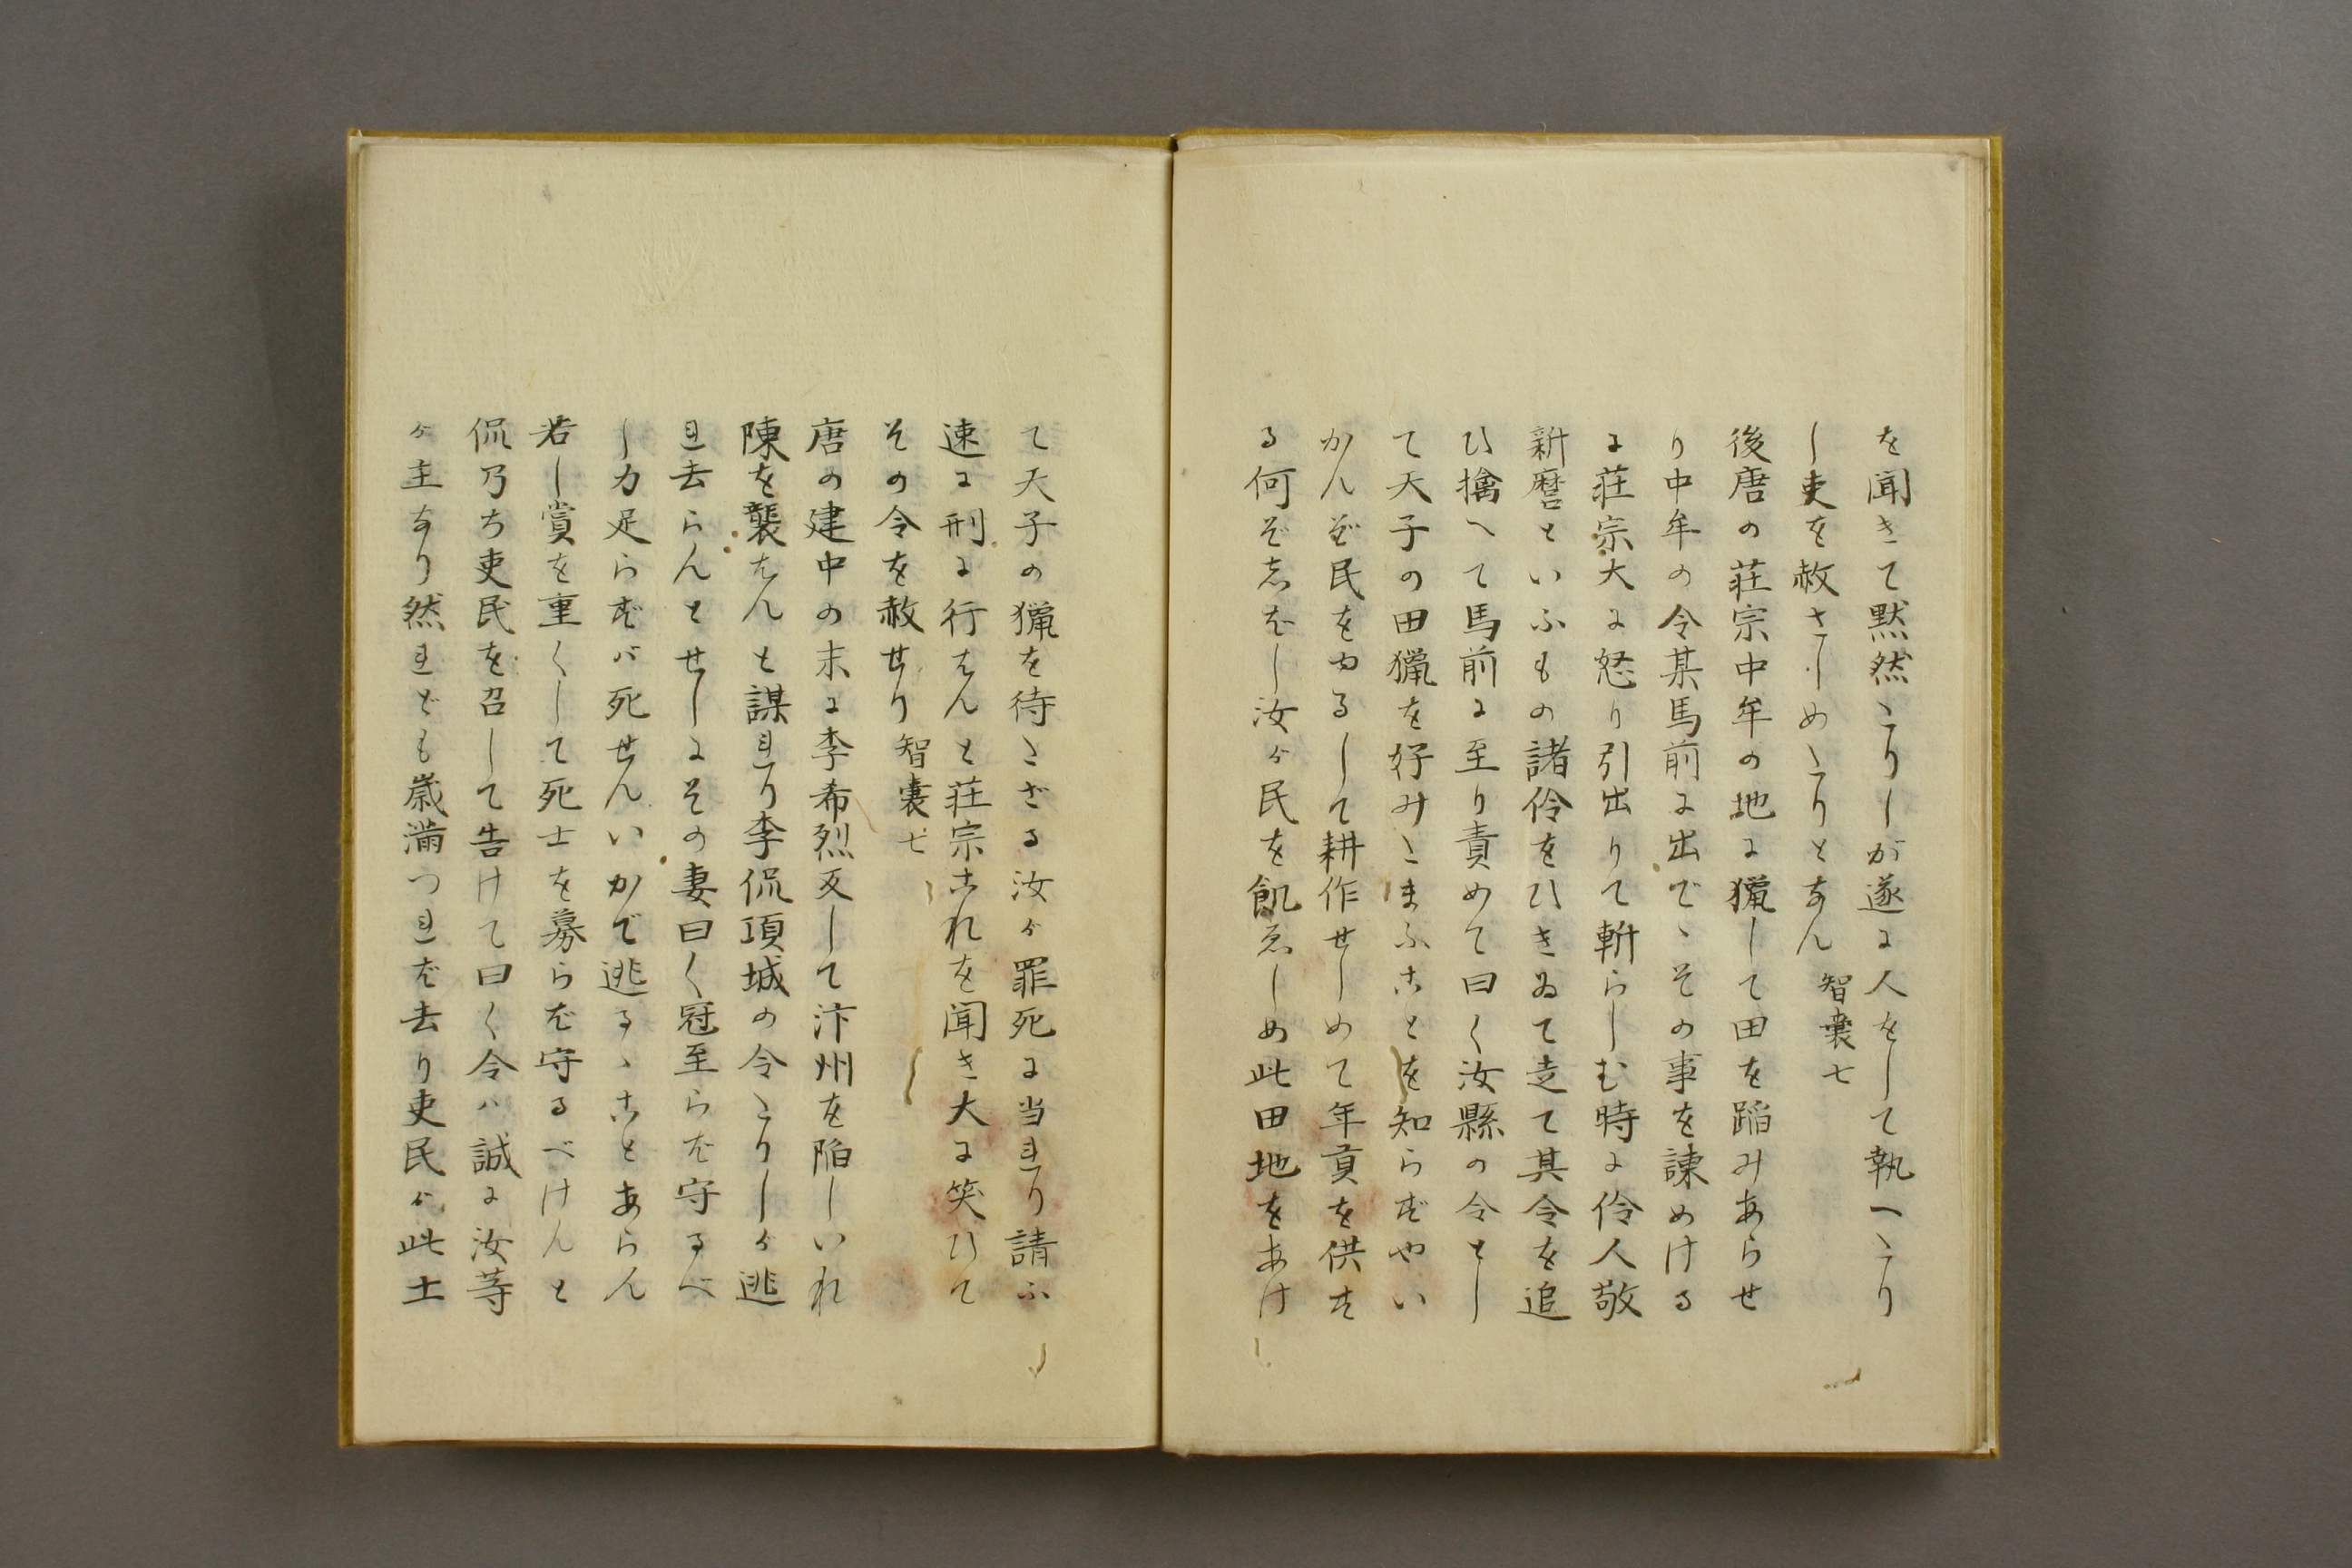 を聞きて黙然たりしが遂に人をして執へたり
し吏を赦さしめたりとなん 智嚢七
後唐の荘宗中牟の地に猟して田を蹈みあらせ
り中牟の令某馬前に出でゝその事を諌めける
に荘宗大に怒り引出りて斬らしむ時に伶人敬
新磨といふもの諸伶をひきゐて走て其令を追
ひ擒へて馬前に至り責めて曰く汝縣の令とし
て天子の田猟を好みたまふことを知らずやい
かんぞ民をゆるして耕作せしめて年貢を供す
る何ぞ志をし汝ヶ民を飢ゑしめ此田地をあけ
て天子の猟を待たざる汝ヶ罪死に当れり請ふ
速に刑に行はんと荘宗これを聞き大に笑ひて
その令を赦せり 智嚢七
唐の建中の末に李希烈反して汴州を陥しいれ
陳を襲はんと謀れり李侃項城の令たりしヶ逃
れ去らんとせしにその妻曰く冦至らは守るべ
し力足らずバ死せんいかで逃るゝことあらん
若し賞を重くして死士を募らは守るべけんと
侃乃ち吏民を召して告けて曰く令ハ誠に汝等
ヶ主なり然れども歳満つれば去り吏民ヶ此土